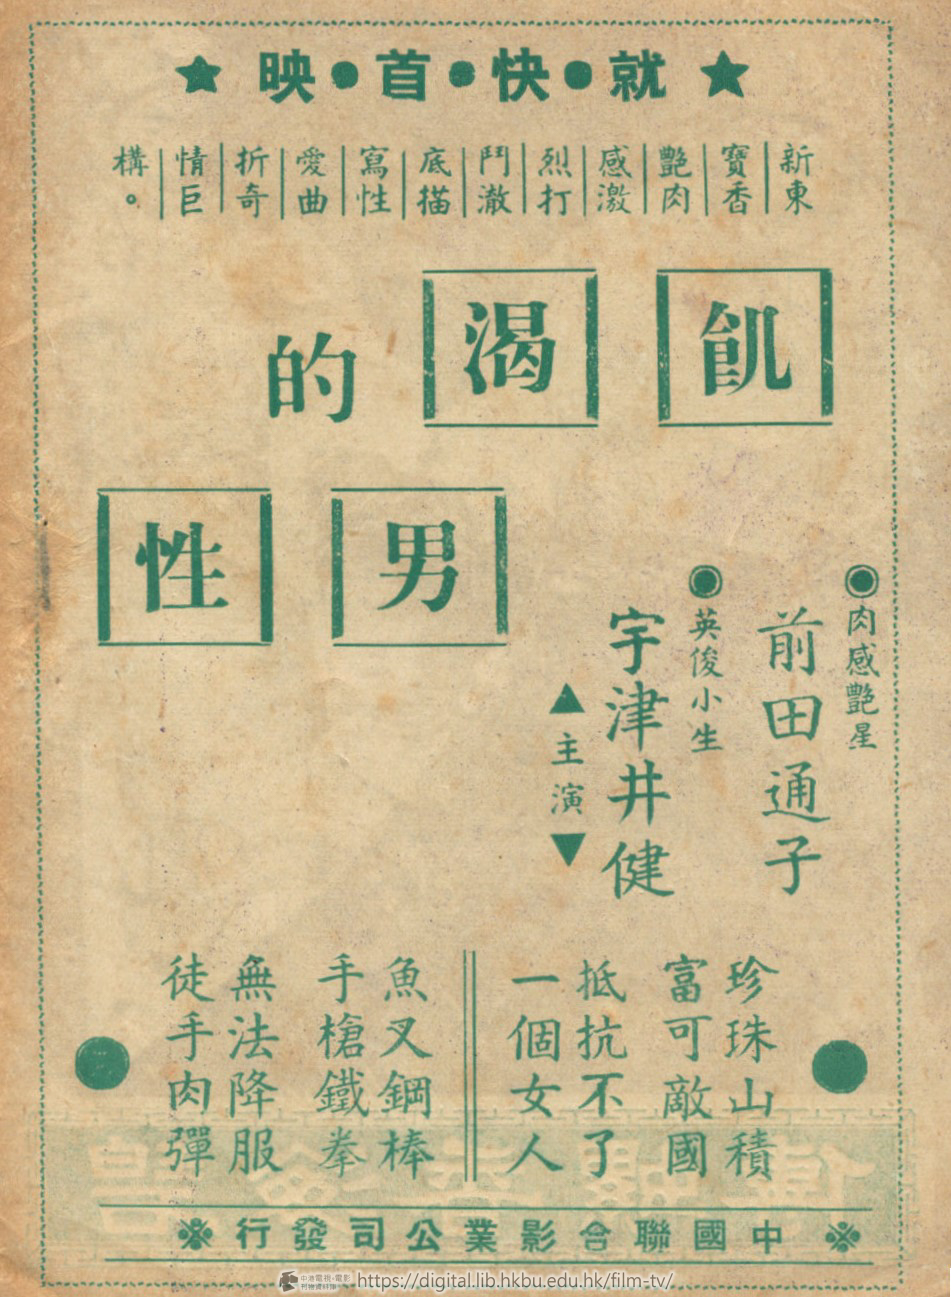 ★就・快・首・映★
新東｜寶香｜艷肉｜感激｜烈打｜鬥澈｜底描｜寫性｜愛曲｜折奇｜情巨｜構。
飢渴的
男性
◉肉感艷星
前田通子
◉英俊小生
宇津井健
▲主演▼
珍珠山積
富可敵國
抵抗不了
一個女人
魚叉鋼棒
手槍鐵拳
無法降服
徒手肉彈
※中國聯合影業公司發行※
中港電視・電影
刊物資料庫
https://digital.lib.hkbu.edu.hk/film-tv/